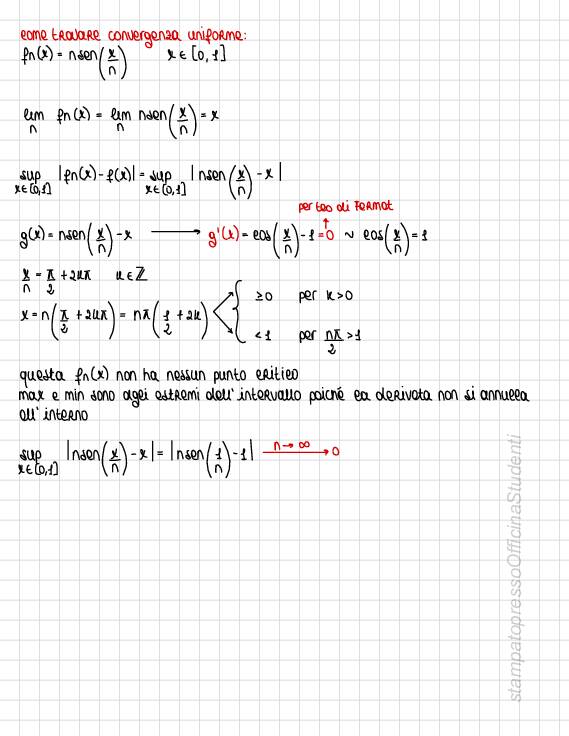 come trovare convergenza uniforme:
fn(x) = nsen(x/n)   x ∈ [0,1]
lim_n fn(x) = lim_n nsen(x/n) = x
sup_{x∈[0,1]} |fn(x) - f(x)| = sup_{x∈[0,1]} |nsen(x/n) - x|
per teo di FERMAT
g(x) = nsen(x/n) - x → g'(x) = cos(x/n) - 1 = 0 ~ cos(x/n) = 1
x/n = π/2 + 2kπ   k ∈ ℤ
≥0 per k>0
x = n(π/2 + 2kπ) = nπ(1/2 + 2k)
<1 per nπ/2 >1
questa fn(x) non ha nessun punto critico
max e min sono agli estremi dell'intervallo poiché la derivata non si annulla
all'interno
sup_{x∈[0,1]} |nsen(x/n) - x| = |nsen(1/n) - 1| n→∞ → 0
stampatopressoOfficinaStudenti